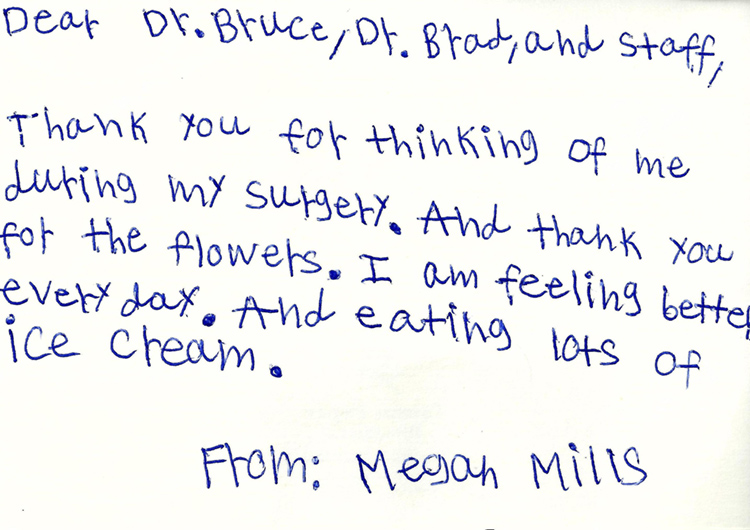 Dear Dr. Bruce, Dr. Brad, and staff,
Thank you for thinking of me
during my surgery. And thank you
for the flowers. I am feeling better
every day. And eating lots of
ice cream.
From: Megan Mills